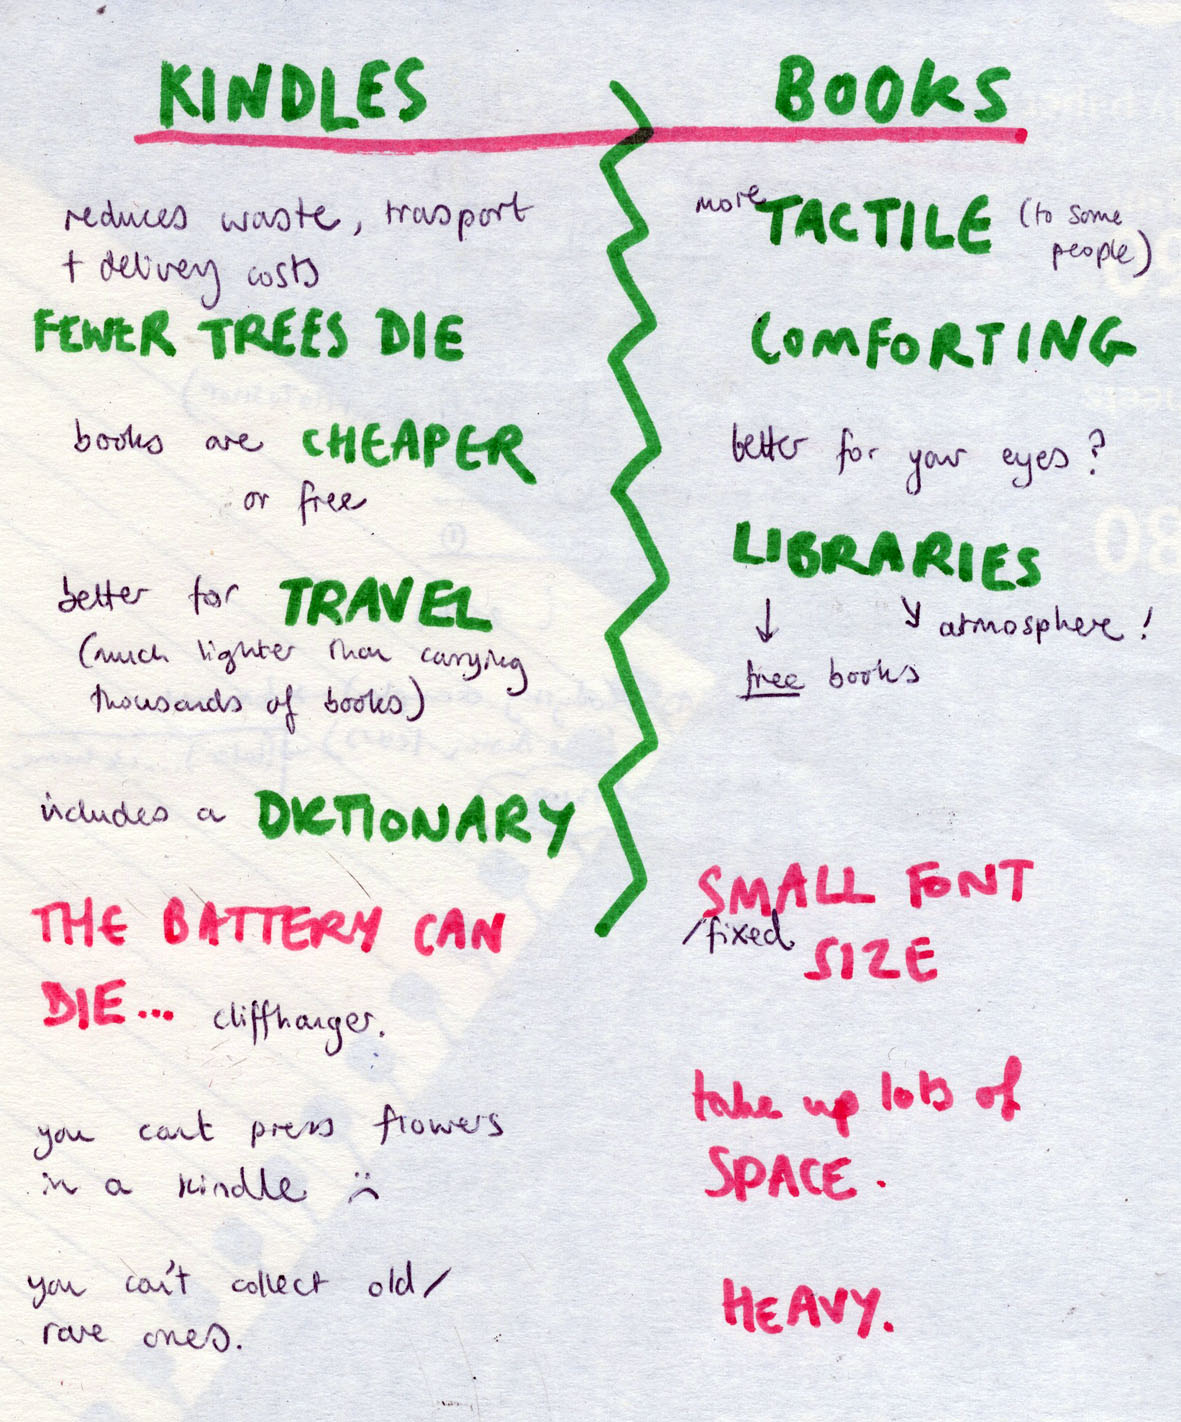 KINDLES
reduces waste, trasport
+ delivery costs
FEWER TREES DIE
books are CHEAPER
or free
better for TRAVEL
(much lighter than carrying
thousands of books)
includes a DICTIONARY
THE BATTERY CAN
DIE... cliffhanger.
you can't press flowers
in a kindle :(
you can't collect old/
rare ones.
BOOKS
more TACTILE (to some
people)
COMFORTING
better for your eyes?
LIBRARIES
↓ ↘ atmosphere!
free books
SMALL FONT
/fixed SIZE
take up lots of
SPACE.
HEAVY.